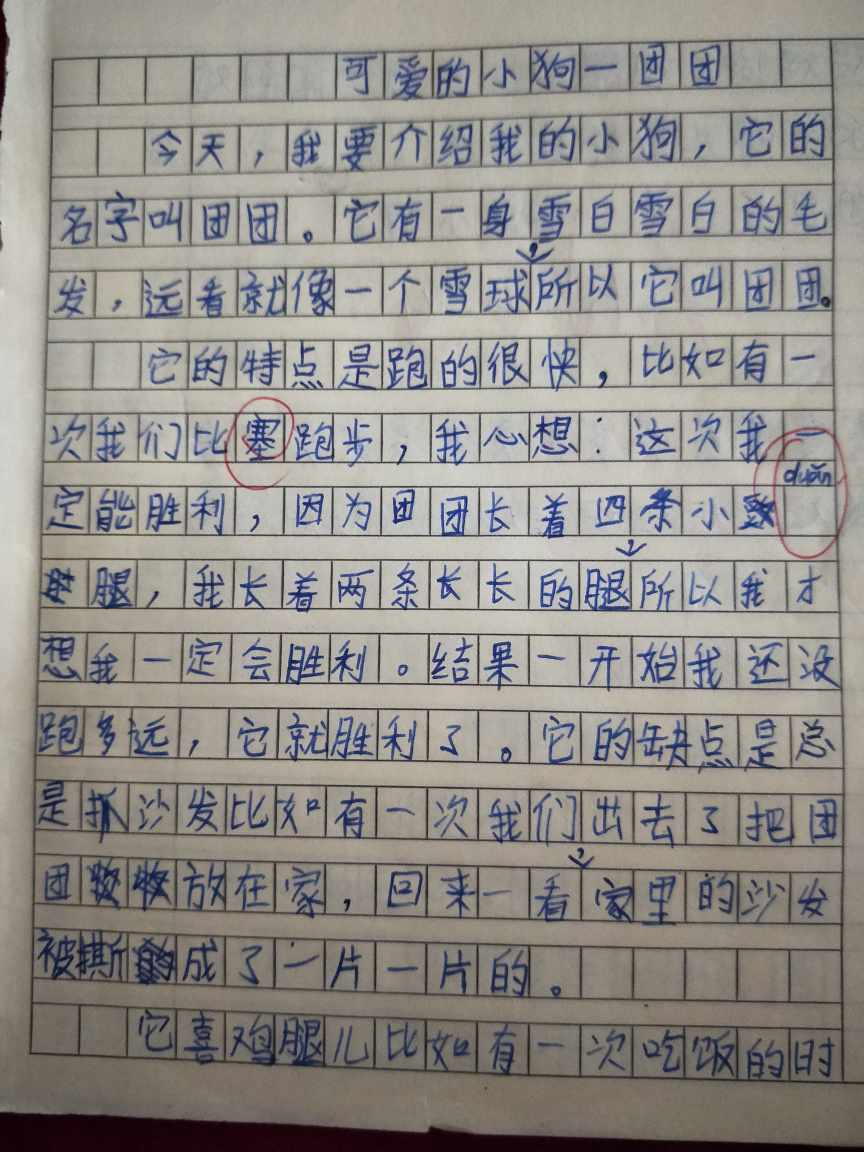 可爱的小狗一团团
今天，我要介绍我的小狗，它的
名字叫团团。它有一身雪白雪白的毛
发，远看就像一个雪球，所以它叫团团。
它的特点是跑的很快，比如有一
次我们比塞跑步，我心想：这次我一
定能胜利，因为团团长着四条小duǎn
腿，我长着两条长长的腿，所以我才
想我一定会胜利。结果一开始我还没
跑多远，它就胜利了。它的缺点是总
是抓沙发比如有一次我们出去了把团
团放在家，回来一看，家里的沙发
被撕成了一片一片的。
它喜鸡腿儿比如有一次吃饭的时